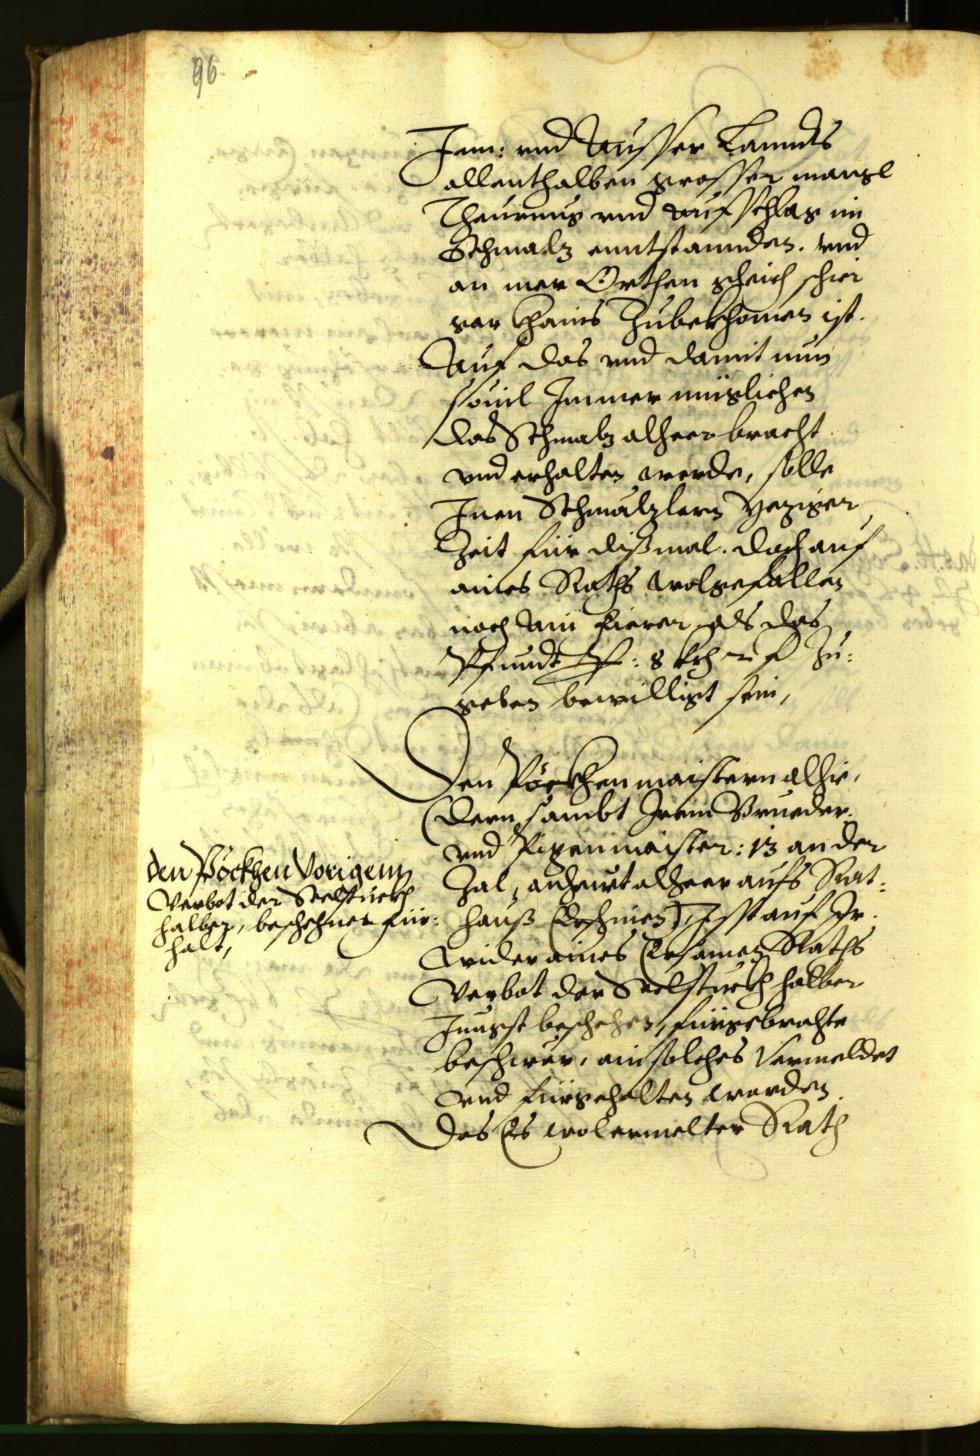 96
Inn: vnd Ausser Lannds
allenthalben grosser mangl
Theurung vnd aufschlag im
Schmalz enntstannden. vnd
an mer Orthen gleich schier
gar khains Zubekhomen ist.
Auf das vnd damit nun
souil Immer müglichen
das Schmalz alheer bracht
vnd erhalten werde, solle
Inen Schmalzlern yeziger
Zeit für dißmal. doch auf
aines Raths wolgefallen
noch ain fierer, als das
Pfundt per: 8 kr Zu:
geben bewilligt sein,
Den Pöckhenmaistern alhie,
(dern sambt Irem Brueder
vnd Pixenmaister: 13 an der
Zal, anheut alheer aufs Rat:
hauß Erschinen) Ist auf Ir
wider aines Ersamen Raths
Verbot der Seelstuckh halber
Jungst beschehen, fürgebrachte
beschwär, ain solches Vermeldet
vnd fürgehalten worden
Das Es wolermelter Rath
den Pöckhen Vorigem
Verbot der Seelstuckh
halben, beschehner für:
halt,